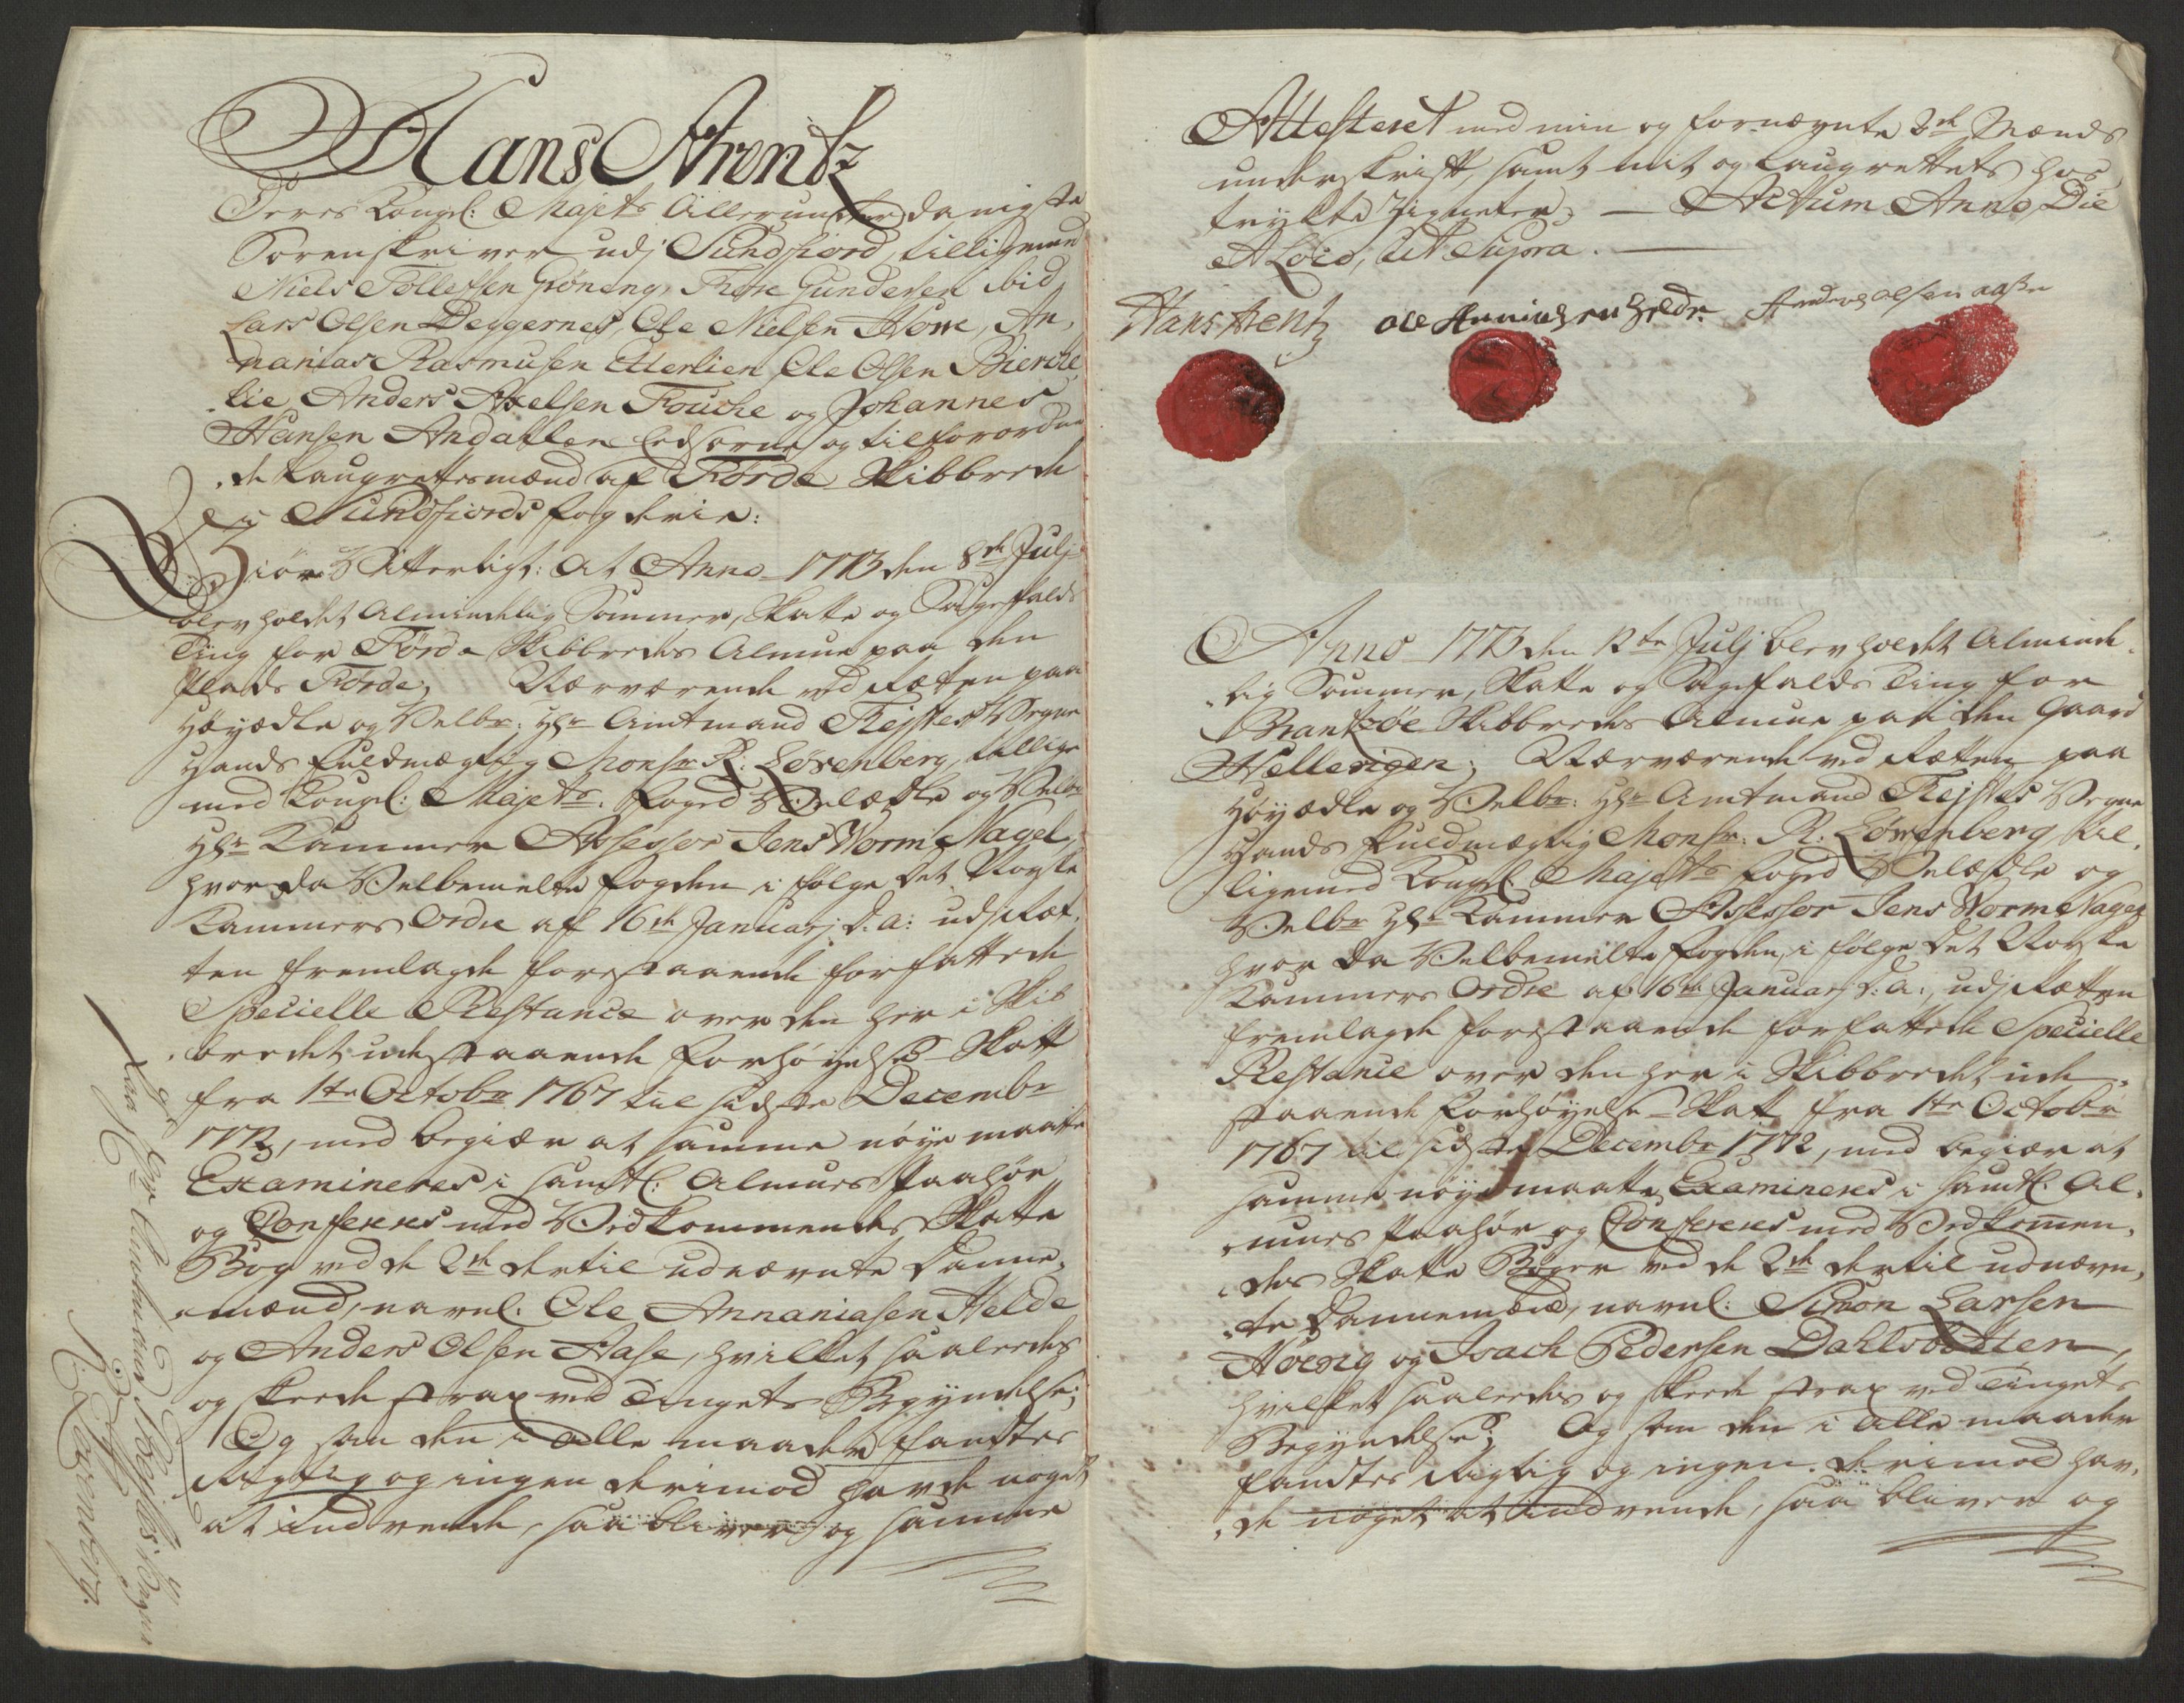 Hans Arentz
Deres Kongel: Majets Allerunderdanigste
Sorenskriver udj Sundfiord, tilligemed
Niels Tollefsen Grøneng, Thore Gundersen ibid,
Lars Olsen Deggernes, Ole Nielsen Hove, An,
nanias Rasmusen Etterlien, Ole Olsen Bierche,
lie Anders Axelsen Fouche og Johannes
Hansen Andallen Eedsorne og tilforordne
de Laugrettesmænd af Førde Skibbrede
udj Sundfiords fogderie:
Giør Vitterligt: At Anno 1773 den 8de Julj
blev holdet Almindelig Sommer, Skatte og Sagefalds
Ting for Førde Skibbredes Almue paa den
Plads Førde, Nærværende ved Retten paa
Høyædle og Velbr: Hr Amtmand Fejsters Vegne
Hands Fuldmægtig Monsr R: Løvenberg, tillige
med Kongel: Majets: foged Velædle og Velbr
Hr Kammer Assessor Jens Worm Nagel,
hvor da Velbemelte fogden i følge det Norske
Kammers Ordre af 16de Januarj d: a: udj Ret,
ten fremlagde forestaaende forfattede
Specielle Restance over den her i Skib
bredet udestaaende Forhøyelse Skatt
fra 1te Octobr 1767 til sidste Decembr
1772, med begiær at samme nøye maatte
Examineres i samtl: Almues Paahør
og Confereres med Vedkommendes Skatte
Bog ved de 2de dertil udnævnte Danne,
mænd, navnl: Ole Annaniasen Helde
og Anders Olsen Aase, hvilket saaledes
og skeede strax ved Tingets Begyndelse;
Og som den i alle maader fandtes
Rigtig og ingen derimod havde noget
at indvende, saa bliver og samme
Paa Hr Amtmand Fejsters Vegne
R: Løvenberg.
Attesteret med min og fornævnte 2de Mænds
underskrift, samt mit og Laugrettets hos
trykte Zigneter, — Actum Anno Die
& Loco, Ut Supra.
Hans Arentz Ole Anniasen Helde Anders Olsen Aase
Anno 1773 den 12te Julj blev holdet Alminde,
lig Sommer, Skatte og Sagefalds Ting for
Brantzøe Skibbredes Almue paa den Gaard
Hellevigen, Nærværende ved Retten paa
Høyædle og Velbr: Hr Amtmand Fejsters Vegne
Hands Fuldmægtig Monsr: R: Løvenberg til,
ligemed Kongel: Majets foged Velædle og
Velbr Hr Kammer Assessor Jens Worm Nagel
hvor da Velbemelte fogden, i følge det Norske
Kammers Ordre af 16de Januarj d: a:, udj Retten
fremlagde forestaaende forfattede Specielle
Restance over den her i Skibbredet ude,
staaende Forhøyelse Skatt fra 1te Octobr
1767 til sidste Decembr 1772, med begiær at
samme nøye maatte Examineres i samtl: Al,
mues Paahør og Confereres med Vedkommen,
des Skatte Bøger ved de 2de dertil udnævn,
te Dannemænd, navnl: Simon Larsen
Hovevig og Isach Pedersen Dahlsbotten,
hvilket saaledes og skeede strax ved Tingets
Begyndelse; Og som den i alle maader
fandtes Rigtig og ingen derimod hav,
de noget at indvende, saa bliver og